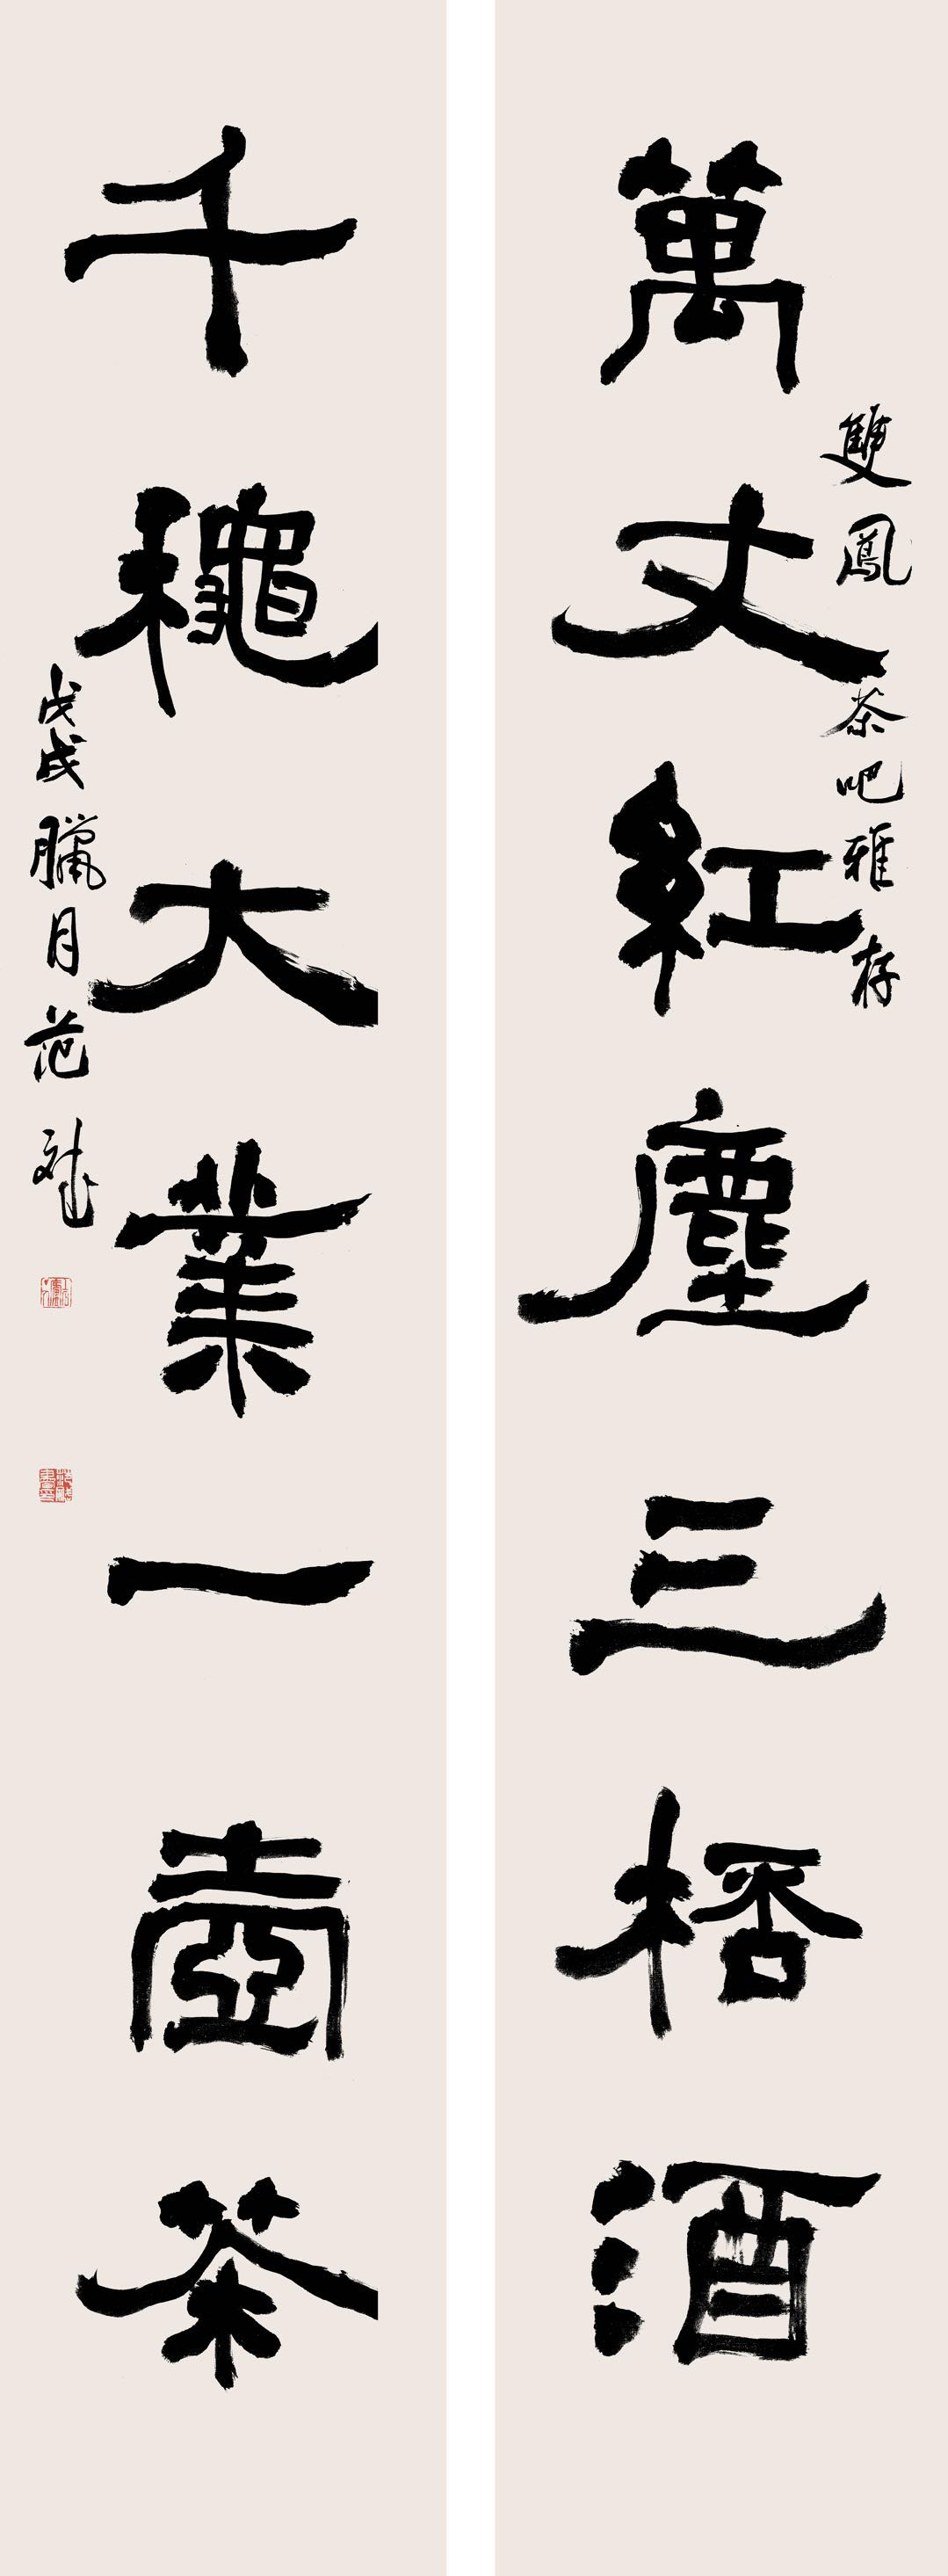 雙鳳茶吧雅存
萬丈紅塵三桮酒
千龝大業一壺茶
戊戌臘月范斌